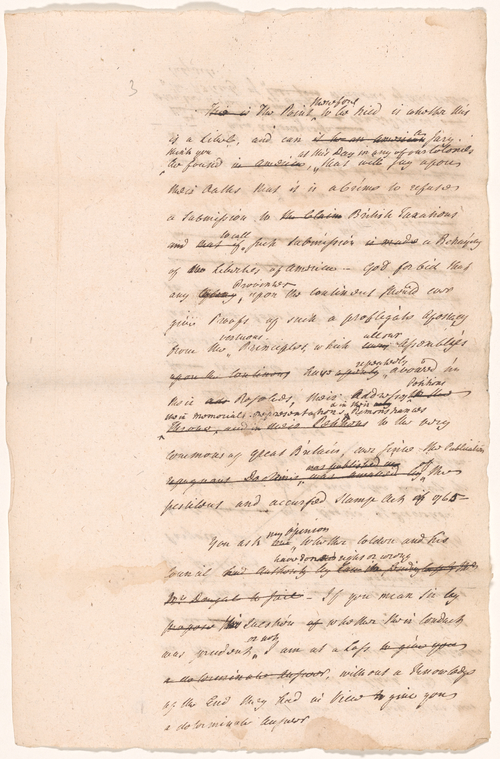 3
therefore
This is The Point, to be tried is whether this
is a Libel, and can it be an American Jury
think you at this Day in any of our Colonies
be found in America, that will say upon
their Oaths that it is a Crime to refuse
a submission to the Claim British Taxations
to call
and that if such submission is made a Betraying
of the Liberties of America - God forbid that
Provinces
any, upon the Continent should ever
give Proofs of such a profligate Apostacy
virtuous all our
from the Principles, which Assemblys
repeatedly
upon the Continent have avowed in
Petitions
their Resolves, their Addresses
their memorials representations & Remonstrances
Throne, and in their Petitions to the very
Commons of Great Britain, ever since the Publication
was published
repugnant of the
pestilent and accursed Stamp Act of 1765
my opinion
You ask whether Colden and his
have done right or wrong
Council had Authority by
Mr Dougal to Jail - If you mean by
propose this Question of whether their Conduct
or not
was prudent, I am at a Loss to give you
a determinate Answer, without a Knowledge
of the End they had in View to give you
a determinate Answer